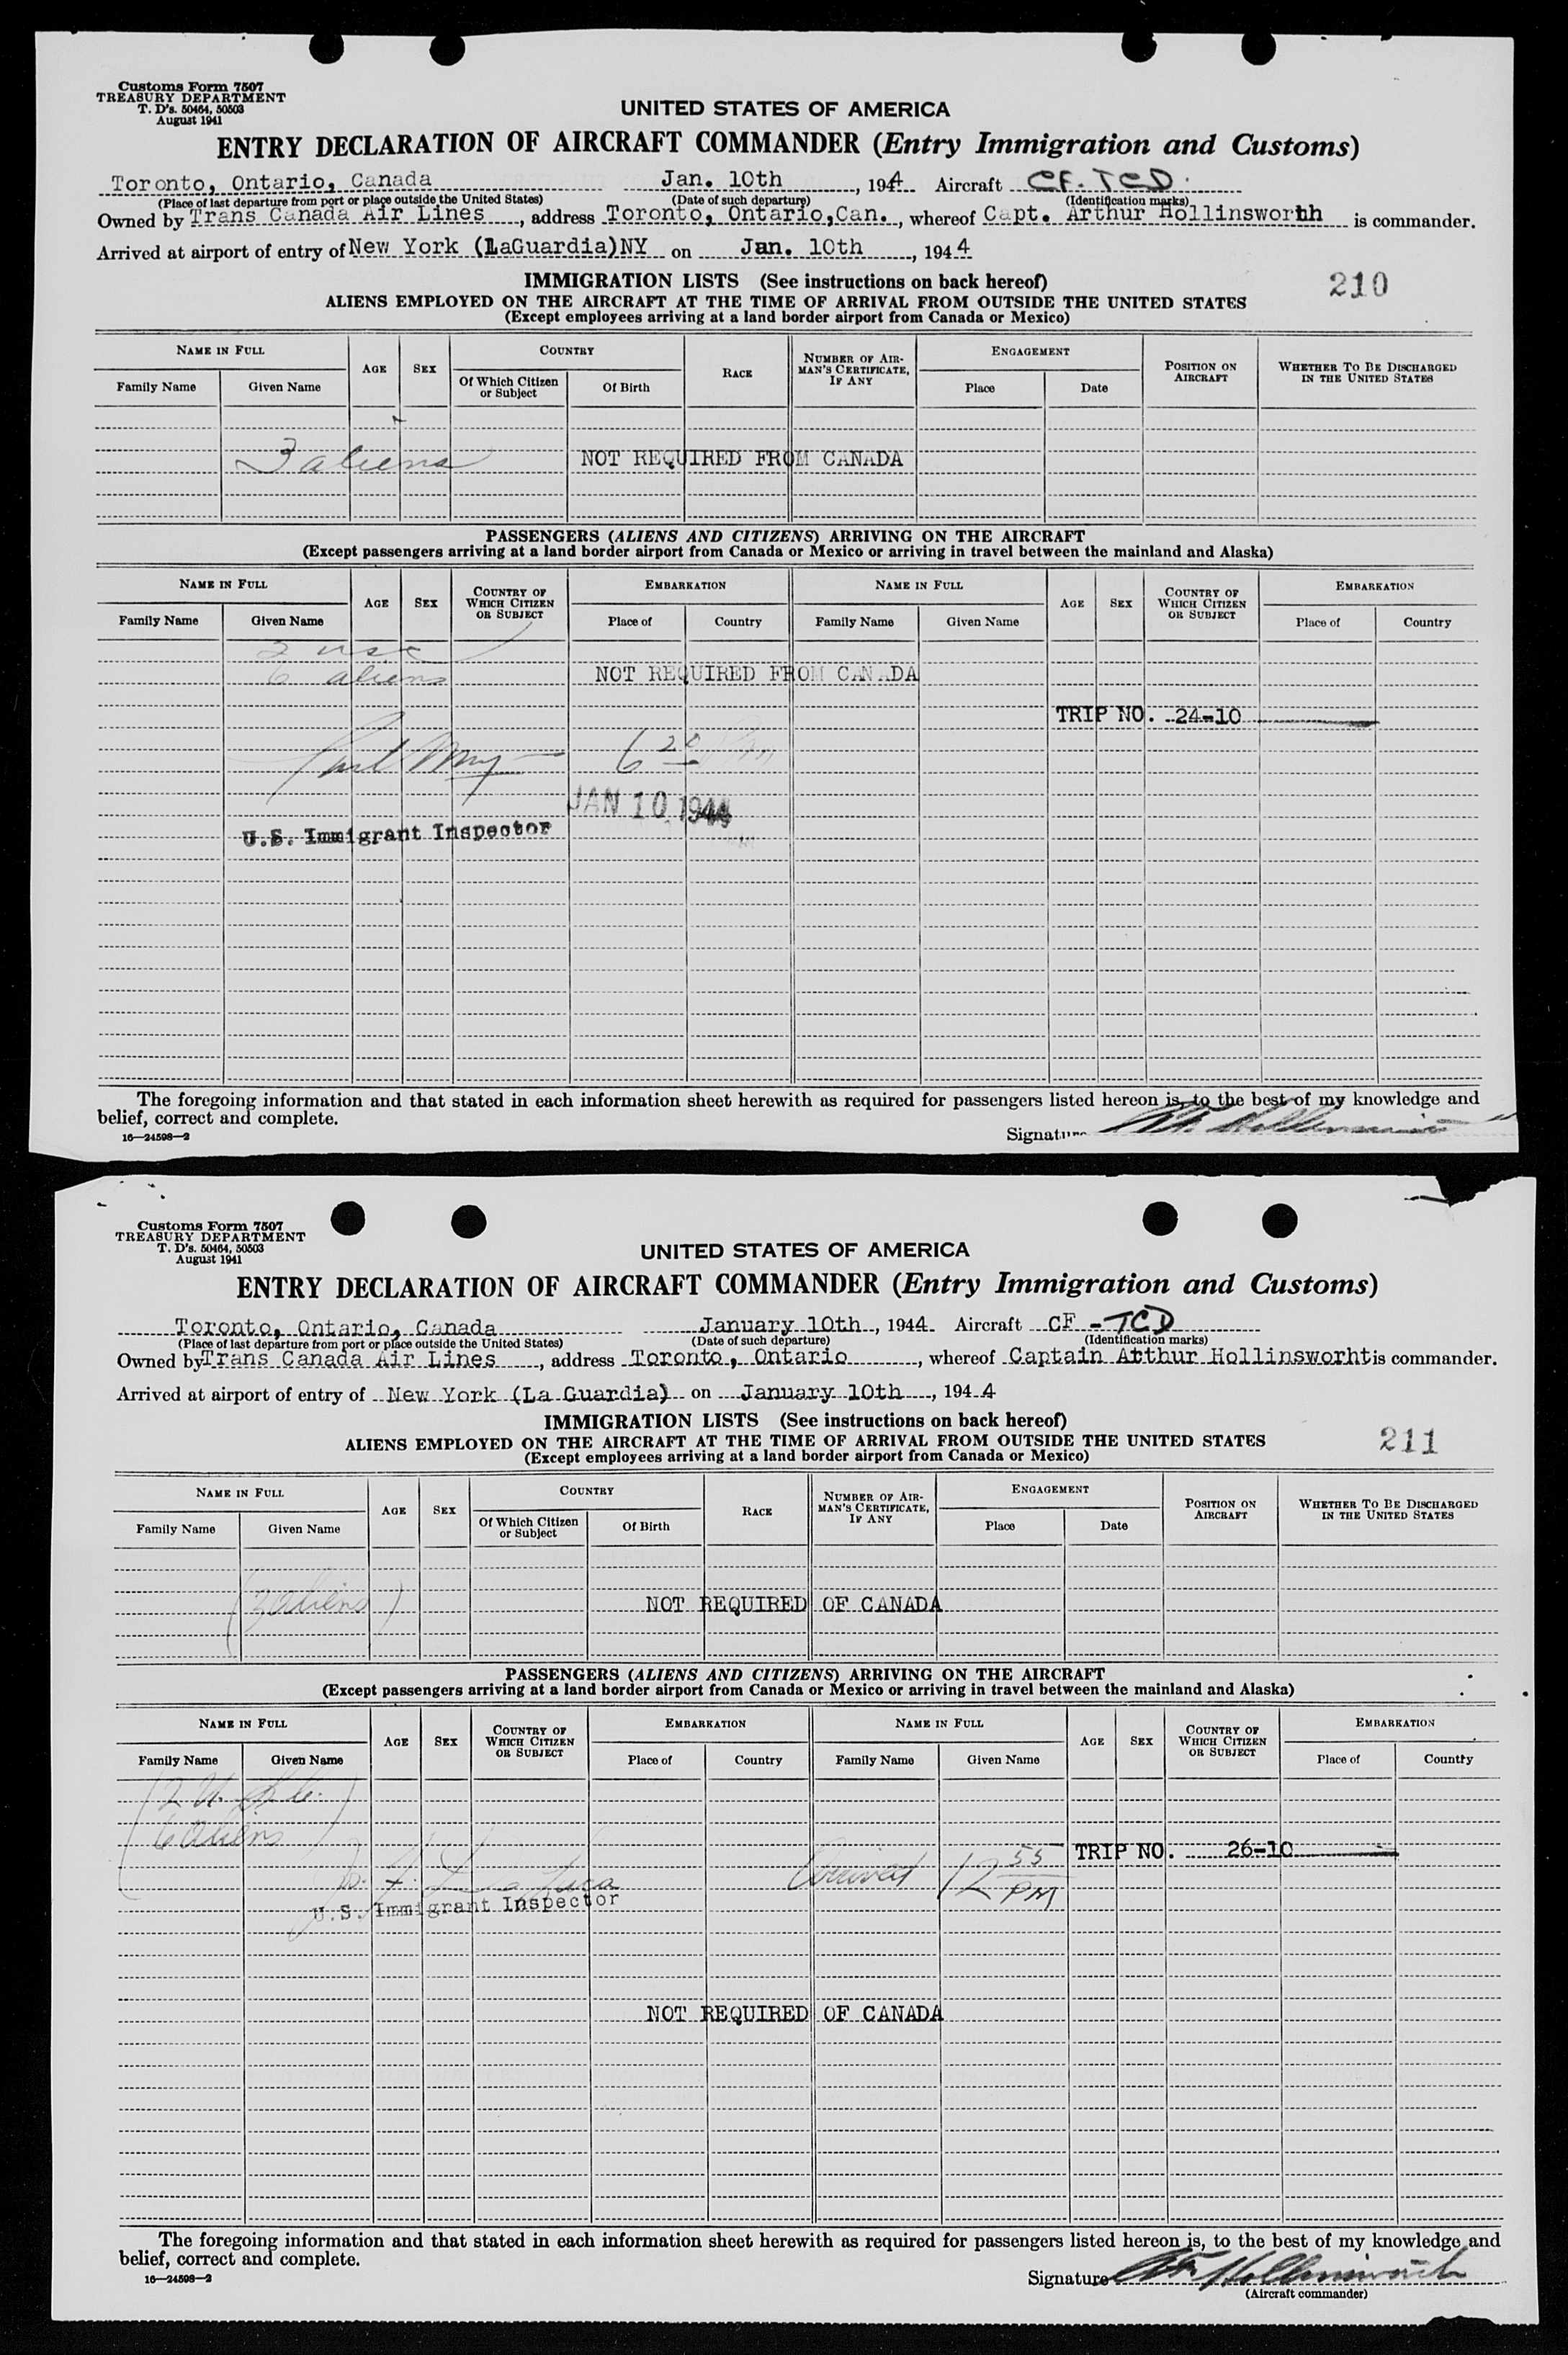 Customs Form 7507
TREASURY DEPARTMENT
T. D's. 50464, 50503
August 1941
UNITED STATES OF AMERICA
ENTRY DECLARATION OF AIRCRAFT COMMANDER (Entry Immigration and Customs)
Toronto, Ontario, Canada Jan. 10th, 1944 Aircraft CF-TCD
(Place of last departure from port or place outside the United States) (Date of such departure) (Identification marks)
Owned by Trans Canada Air Lines, address Toronto, Ontario,Can., whereof Capt. Arthur Hollinsworth is commander.
Arrived at airport of entry of New York (LaGuardia)NY on Jan. 10th, 1944
IMMIGRATION LISTS (See instructions on back hereof)
210
ALIENS EMPLOYED ON THE AIRCRAFT AT THE TIME OF ARRIVAL FROM OUTSIDE THE UNITED STATES
(Except employees arriving at a land border airport from Canada or Mexico)
NAME IN FULL AGE SEX COUNTRY RACE NUMBER OF AIRMAN'S CERTIFICATE, IF ANY ENGAGEMENT POSITION ON AIRCRAFT WHETHER TO BE DISCHARGED IN THE UNITED STATES
Family Name Given Name Of Which Citizen or Subject Of Birth Place Date
3 aliens NOT REQUIRED FROM CANADA
PASSENGERS (ALIENS AND CITIZENS) ARRIVING ON THE AIRCRAFT
(Except passengers arriving at a land border airport from Canada or Mexico or arriving in travel between the mainland and Alaska)
NAME IN FULL AGE SEX COUNTRY OF WHICH CITIZEN OR SUBJECT EMBARKATION NAME IN FULL AGE SEX COUNTRY OF WHICH CITIZEN OR SUBJECT EMBARKATION
Family Name Given Name Place of Country Family Name Given Name Place of Country
2 usc
6 aliens NOT REQUIRED FROM CANADA
TRIP NO. 24-10
6 20
JAN 10 1944
U.S. Immigrant Inspector
The foregoing information and that stated in each information sheet herewith as required for passengers listed hereon is, to the best of my knowledge and
belief, correct and complete.
16—24598—2
Signature
Customs Form 7507
TREASURY DEPARTMENT
T. D's. 50464, 50503
August 1941
UNITED STATES OF AMERICA
ENTRY DECLARATION OF AIRCRAFT COMMANDER (Entry Immigration and Customs)
Toronto, Ontario, Canada January 10th, 1944 Aircraft CF-TCD
(Place of last departure from port or place outside the United States) (Date of such departure) (Identification marks)
Owned by Trans Canada Air Lines, address Toronto, Ontario, whereof Captain Arthur Hollinsworht is commander.
Arrived at airport of entry of New York (La Guardia) on January 10th, 1944
IMMIGRATION LISTS (See instructions on back hereof)
211
ALIENS EMPLOYED ON THE AIRCRAFT AT THE TIME OF ARRIVAL FROM OUTSIDE THE UNITED STATES
(Except employees arriving at a land border airport from Canada or Mexico)
NAME IN FULL AGE SEX COUNTRY RACE NUMBER OF AIRMAN'S CERTIFICATE, IF ANY ENGAGEMENT POSITION ON AIRCRAFT WHETHER TO BE DISCHARGED IN THE UNITED STATES
Family Name Given Name Of Which Citizen or Subject Of Birth Place Date
(3 aliens) NOT REQUIRED OF CANADA
PASSENGERS (ALIENS AND CITIZENS) ARRIVING ON THE AIRCRAFT
(Except passengers arriving at a land border airport from Canada or Mexico or arriving in travel between the mainland and Alaska)
NAME IN FULL AGE SEX COUNTRY OF WHICH CITIZEN OR SUBJECT EMBARKATION NAME IN FULL AGE SEX COUNTRY OF WHICH CITIZEN OR SUBJECT EMBARKATION
Family Name Given Name Place of Country Family Name Given Name Place of Country
(2 U.S.C.
6 aliens)
TRIP NO. 26-10
Arrived 12 55 PM
U.S. Immigrant Inspector
NOT REQUIRED OF CANADA
The foregoing information and that stated in each information sheet herewith as required for passengers listed hereon is, to the best of my knowledge and
belief, correct and complete.
16—24598—2
Signature
(Aircraft commander)